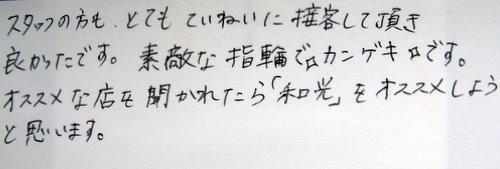 スタッフの方も、とてもていねいに接客して頂き
良かったです。素敵な指輪で☆カンゲキ☆です。
オススメな店を聞かれたら「和光」をオススメしよう
と思います。